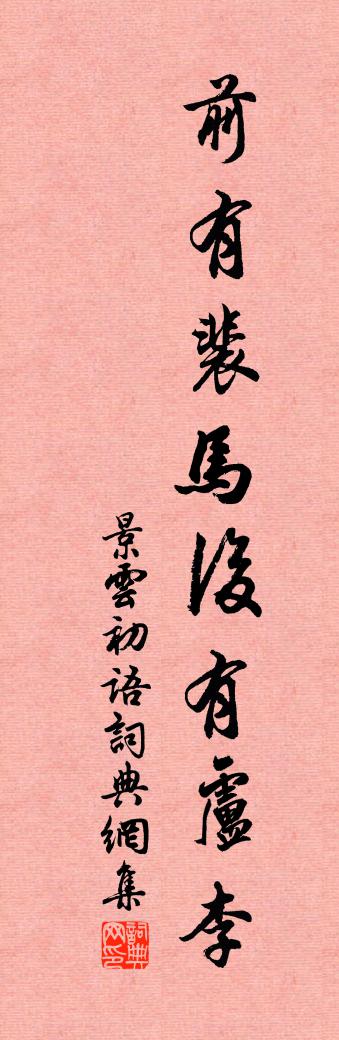 前有裴馬後有盧李
景雲初語詞典網集
詞典网印